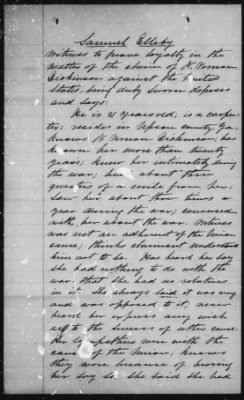 Samuel Elleby
Witness to prove loyalty in the
matter of the claim of N. Roman
Dickinson against the United
States, being duly sworn deposes
and says:
He is 51 years old; is a carpen-
ter; resides in Upson County, Ga.
knows N. Roman Dickinson; has
known her more than twenty
years; knew her intimately during
the war; lived about three
quarters of a mile from her;
Saw her about three times a
year during the war; conversed
with her about the war. Witness
was not an adherent of the Union
cause; thinks claimant understood
him not to be. Has heard her say
she had nothing to do with the
war; that she had no relatives
in it. She always said it was wrong
and was opposed to it; never
heard her express any wish
as to the success of either cause.
Her sympathies were with the
cause of the Union; knows
they were because of hearing
her say so. She said she had